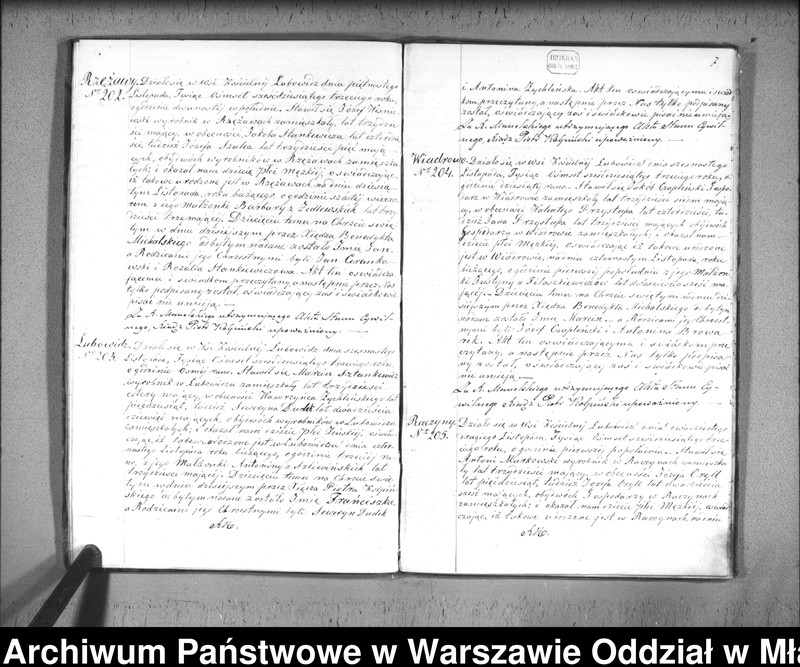 Rzężawy. Działo się w wsi Kościelnéj Lubowidz dnia piętnastego
Nº 202. Listopada, Tysiąc Ośmset sześćdziesiątego trzeciego roku,
o godzinie dwunastéj w południe. Stawił się Józef
wyrobnik w Rzężawach zamieszkały, lat trzydzieści
mający, w obecności Jakóba Stankiewicza lat czterdzieści
tudzież Józefa Szulca lat trzydzieści pięć mają-
cych, obydwóch wyrobników w Rzężawach zamieszka-
łych; i okazał nam dziecię płci Męzkiéj, oświadczając,
iż takowe urodzone jest w Rzężawach na dniu dziesią-
tym Listopada, roku bieżącego, o godzinie szóstéj wieczo-
rem z jego Małżonki Barbary z Zedlewskich lat trzy-
dzieści trzy mającéj. Dziecięciu temu na Chrzcie świę-
tym w dniu dzisiejszym przez Księdza Benedykta
Michalskiego odbytym nadane zostało Imie Jan,
a Rodzicami jego Chrzestnymi byli Jan
i Rozalia Stankiewiczowa. Akt ten oświadcza-
jącemu i świadkom przeczytany, a następnie przez Nas
tylko podpisany został, oświadczający zaś i świadkowie
pisać nie umieją. —
Za A. Utrzymującego Akta Stanu Cywil-
nego, Ksiądz Piotr Kolpiński upoważniony. —
Lubowidz. Działo się w Wsi Kościelnéj Lubowidz dnia szesnastego
Nº 203. Listopada, Tysiąc Ośmset sześćdziesiątego trzeciego roku,
o godzinie Ósméj rano. Stawił się Marcin Sztankiewicz
wyrobnik w Lubowidzu zamieszkały lat trzydzieści
cztery mający, w obecności Wawrzyńca Zychlińskiego lat
pięćdziesiąt, tudzież Seweryna Dudek lat dwadzieścia
dziewięć mających, obydwóch wyrobników w Lubowidzu
zamieszkałych; i okazał nam dziecię płci Żeńskiéj, oświad-
czając, iż takowe urodzone jest w Lubowidzu dnia czter-
nastego Listopada roku bieżącego, o godzinie trzeciéj ra-
no z jego Małżonki Antoniny z lat
trzydzieści mającéj. Dziecięciu temu na Chrzcie świę-
tym w dniu dzisiejszym przez Księdza Piotra Kolpiń-
skiego odbytym nadane zostało Imie Franciszka,
a Rodzicami jego Chrzestnymi byli Seweryn Dudek
7
i Antonina Zychlińska. Akt ten oświadczającemu i świad-
kom przeczytany, a następnie przez Nas tylko podpisany
został, oświadczający zaś i świadkowie pisać nie umieją.
Za A. Utrzymującego Akta Stanu Cywil-
nego, Ksiądz Piotr Kolpiński upoważniony. —
Wiadrowo. Działo się w wsi Kościelnéj Lubowidz dnia szesnastego
Nº 204. Listopada, Tysiąc Ośmset sześćdziesiątego trzeciego roku, o
godzinie dziesiątéj rano. Stawił się Jakób Czapleński Gospo-
darz w Wiadrowie zamieszkały lat trzydzieści siedm mają-
cy, w obecności Walentego Przystupa lat czterdzieści, tu-
dzież Jana Przystupa lat trzydzieści mających, obydwóch
Gospodarzy w Wiadrowie zamieszkałych; i okazał nam
dziecię płci Męzkiéj, oświadczając iż takowe urodzone
jest w Wiadrowie, na dniu czternastym Listopada, roku
bieżącego, o godzinie pierwszéj popołudniu z jego Małżon-
ki Justyny z lat dwadzieścia sześć ma-
jącéj. Dziecięciu temu na Chrzcie świętym w dniu dzi-
siejszym przez Księdza Benedykta Michalskiego odbytym
nadane zostało Imie Marcin, a Rodzicami jego Chrzest-
nymi byli Józef Czapleński i Antonina Browa-
rek. Akt ten oświadczającemu i świadkom prze-
czytany, a następnie przez Nas tylko podpisa-
ny został, oświadczający zaś i świadkowie pisać
nie umieją. —
Za A. Utrzymującego Akta Stanu Cy-
wilnego Ksiądz Piotr Kolpiński upoważniony. —
Raczyny. Działo się w wsi Kościelnéj Lubowidz dnia dwudziestego
Nº 205. Listopada, Tysiąc Ośmset sześćdziesiątego trze-
ciego roku, o godzinie pierwszéj popołudniu. Stawił się
Antoni Markowski wyrobnik w Raczynach zamieszka-
ły lat trzydzieści mający, w obecności Józefa Cryll
lat pięćdziesiąt, tudzież Józefa Cryll lat dwadzieścia
sześć mających, obydwóch Gospodarzy w Raczynach
zamieszkałych; i okazał nam dziecię płci Męzkiéj, oświad-
czając, iż takowe urodzone jest w Raczynach, na dniu
Archiwum Państwowe w Warszawie Oddział w Mła